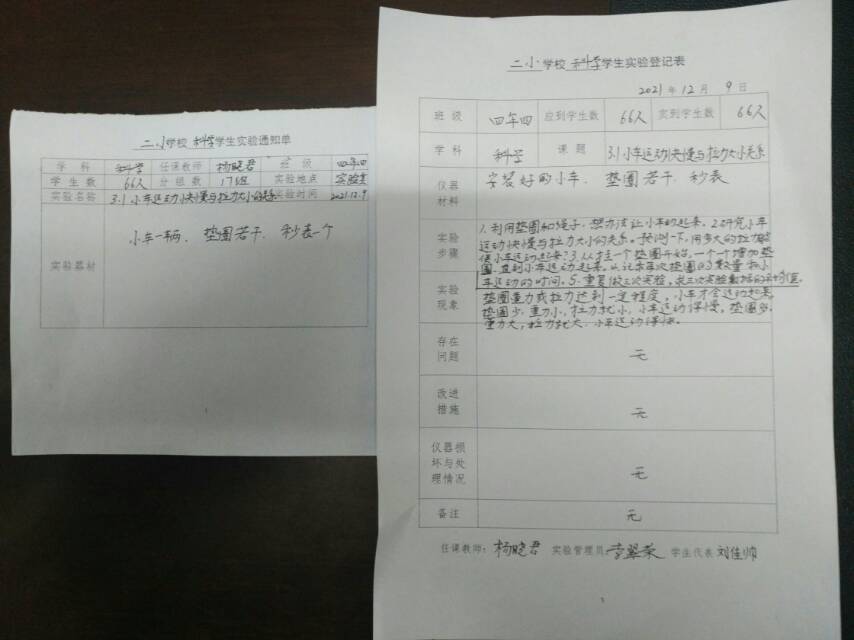 二小学校 科学学生实验通知单
学科 科学 任课教师 杨晓君 班级 四年四
学生数 66人 分组数 17组 实验地点 实验室
实验名称 3.1小车运动快慢与拉力大小的关系 实验时间 2021.12.9
实验器材 小车一辆、垫圈若干、秒表一个
二小学校 科学学生实验登记表
2021年12月9日
班级 四年四 应到学生数 66人 实到学生数 66人
学科 科学 课题 3.1小车运动快慢与拉力大小关系
仪器材料 安装好的小车、垫圈若干、秒表
实验步骤 1.利用垫圈和绳子,想办法让小车动起来。2.研究小车
运动快慢与拉力大小的关系。预测一下,用多大的拉力能
使小车运动起来?3.从挂一个垫圈开始,一个一个增加垫
圈,直到小车运动起来。4.记录每次垫圈的数量和小
车运动的时间。5.重复做三次实验,求三次实验数据的平均值。
实验现象 垫圈重力或拉力达到一定程度,小车才会运动起来。
垫圈少,重力小,拉力就小,小车运动得慢。垫圈多,
重力大,拉力就大,小车运动得快。
存在问题 无
改进措施 无
仪器损坏与处理情况 无
备注 无
任课教师:杨晓君 实验管理员:李翠荣 学生代表 刘佳帅